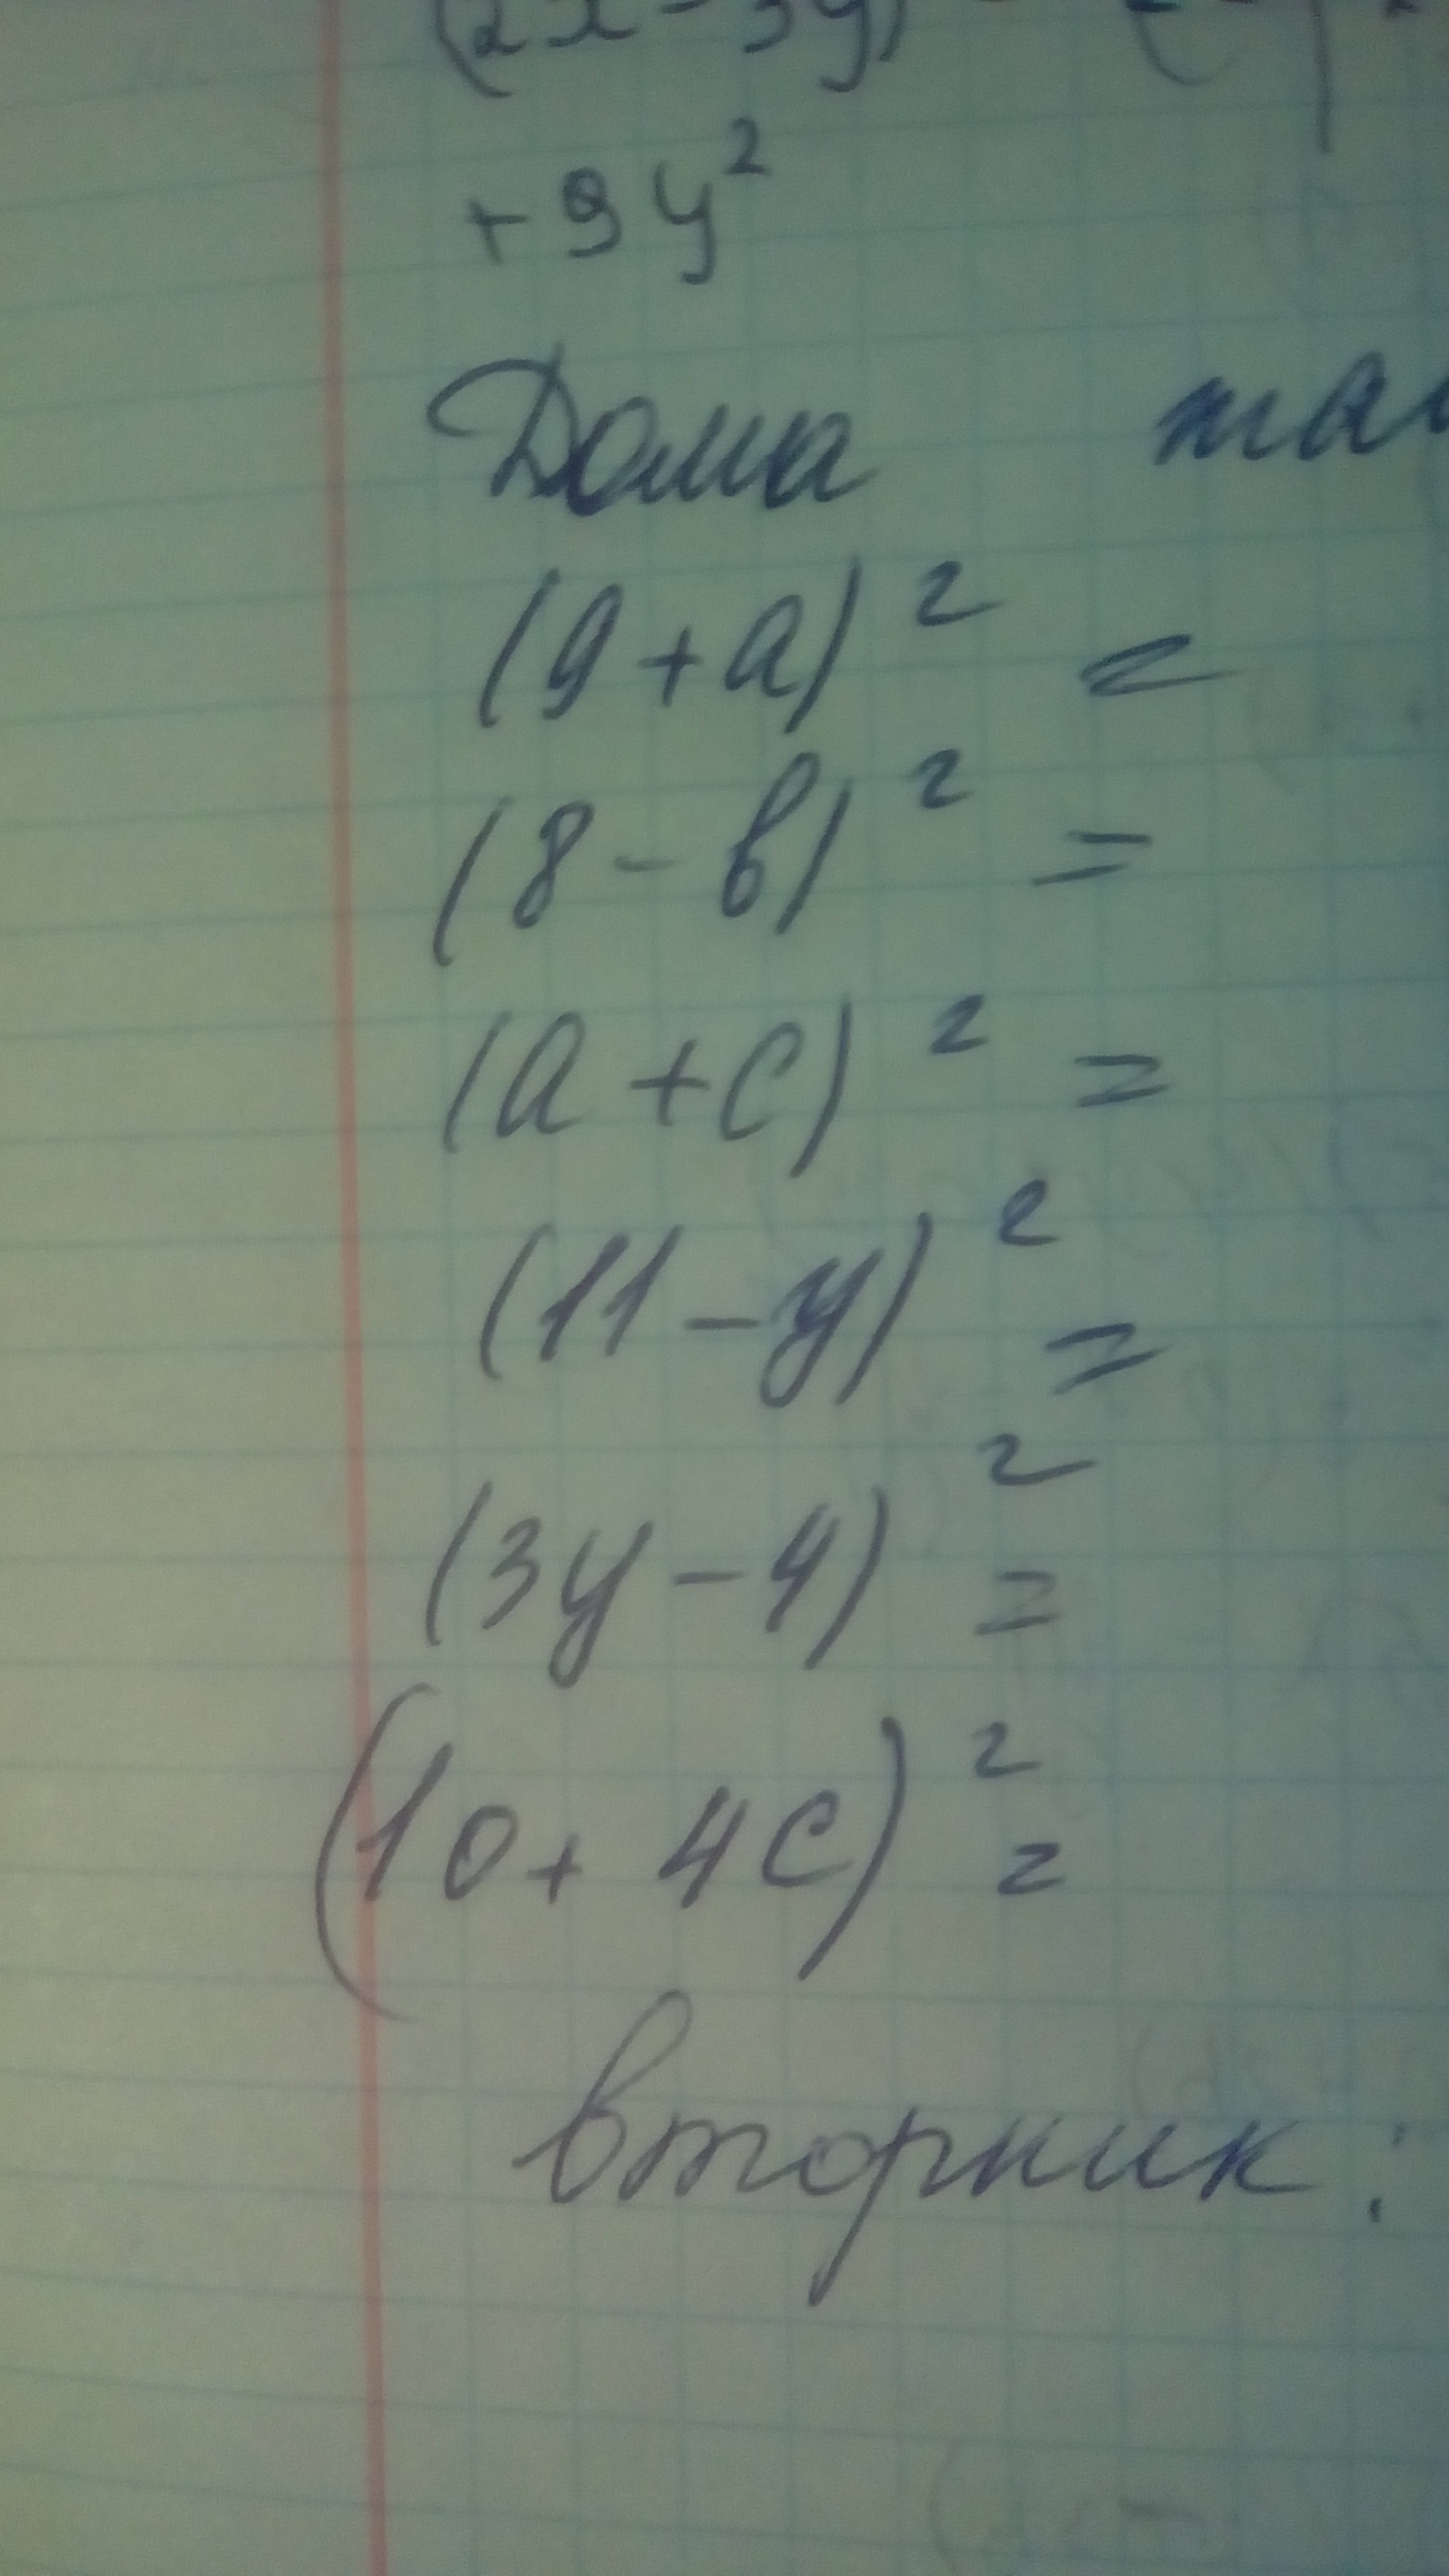 (2x-3y)
+9y²
Дома
(9+a)² =
(8-b)² =
(a+c)² =
(11-y)² =
(3y-4)² =
(10+4c)² =
вторник: